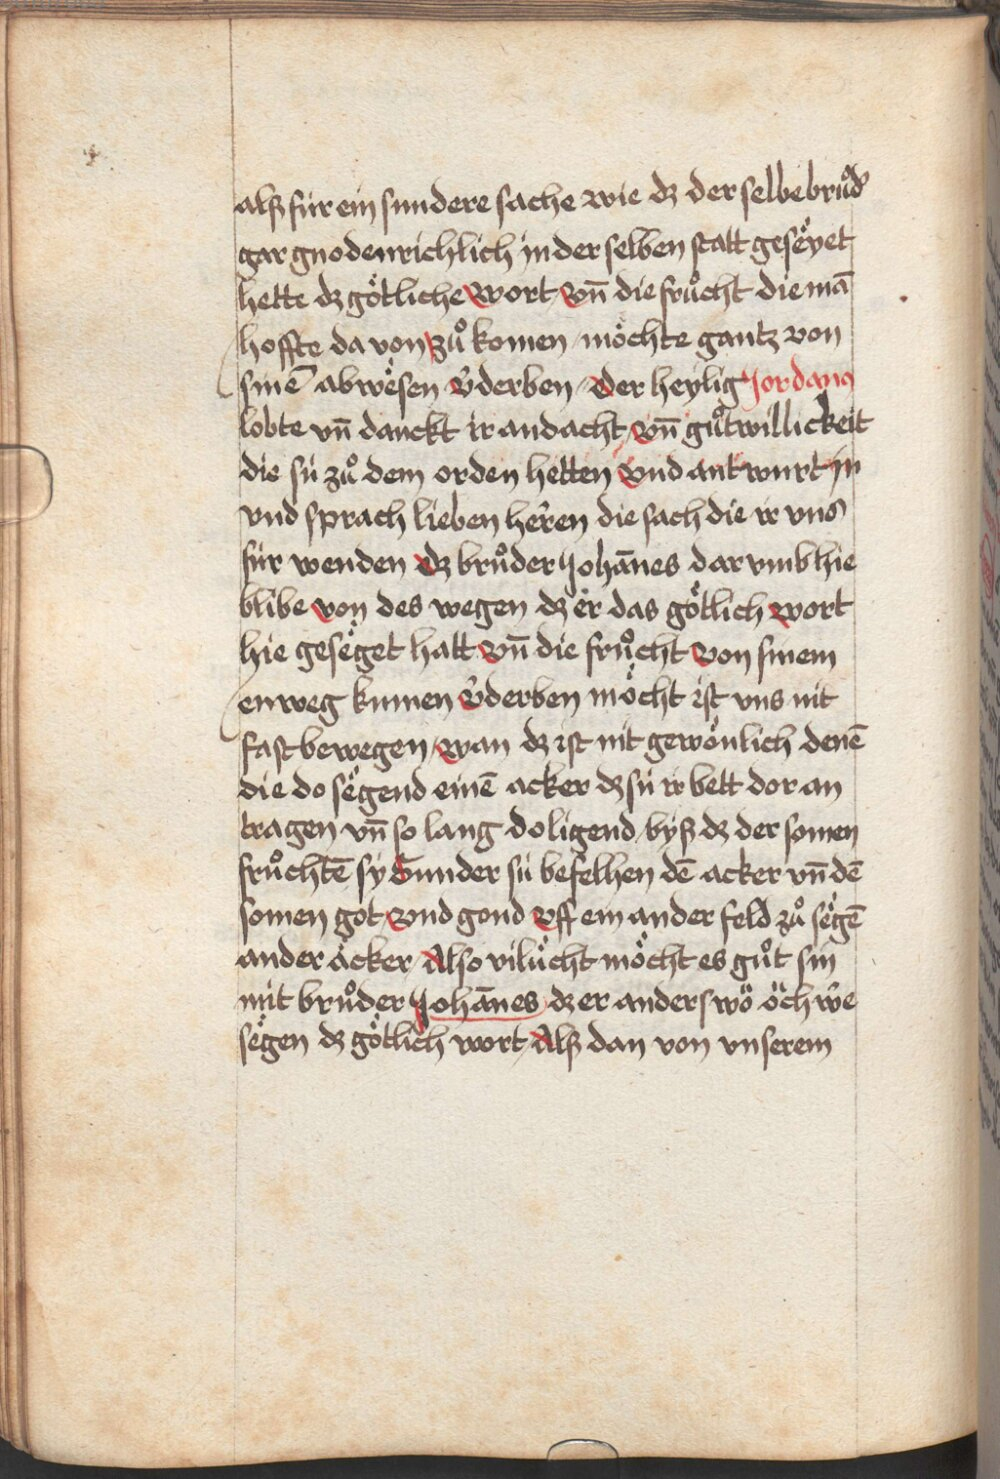 alß für ein sundere sache wie dz der selbe brůd'
gar gnodenrichlich in der selben statt geseyet
hette dz götliche wort vn̄ die frücht die mā
hoffte da von zů komen möchte gantz von
sinē abwesen v̄derben / der heylig Jordanus
lobte vn̄ danckt ir andacht / vn̄ gůtwillickeit
die sü zů dem orden hetten vnd antwurt in
vnd sprach lieben heren die sach die ir vns
für wenden dz brůder Johānes dar vmb hie
blibe von des wegen dz er das götlich wort
hie geseget hatt vn̄ die frücht von sinem
enweg kumen v̄derben möcht ist vns nit
fast bewegen / wan dz ist nit gewönlich denē
die do segend einē acker dz sü ir bett dor an
tragen vn̄ so lang do ligend byß dz der somen
früchtē sy Sunder sü befelhen dē acker vn̄ dē
somen got vnd gond vff ein ander feld zů segē
ander äcker / Also vilücht möcht es gůt sin
mit brůder Johānes dz er anderswö öch we
segen dz götlich wort / Alß dan von vnserem